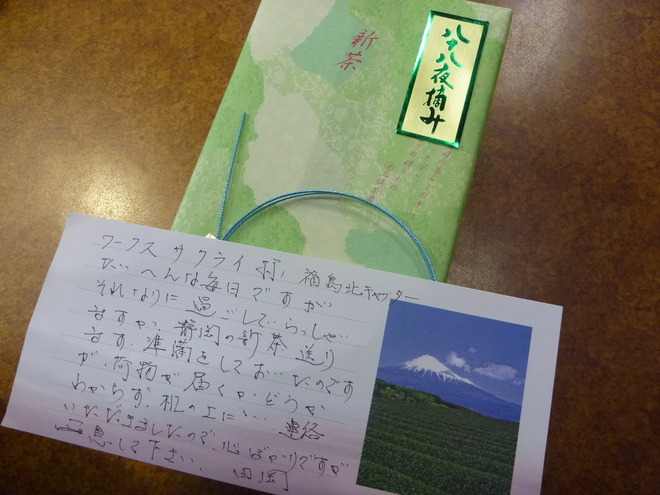 新茶
八十八夜摘み
ワークス サクライ 様 福島北キャプター
たいへんな毎日ですが
それなりに過ごしていらっしゃい
ますか、静岡の新茶送り
ます。準備をしておいたのです
が、荷物が届くかどうか
わからず、机の上に… 連絡
いただきましたので、心ばかりですが
一息して下さい 田岡